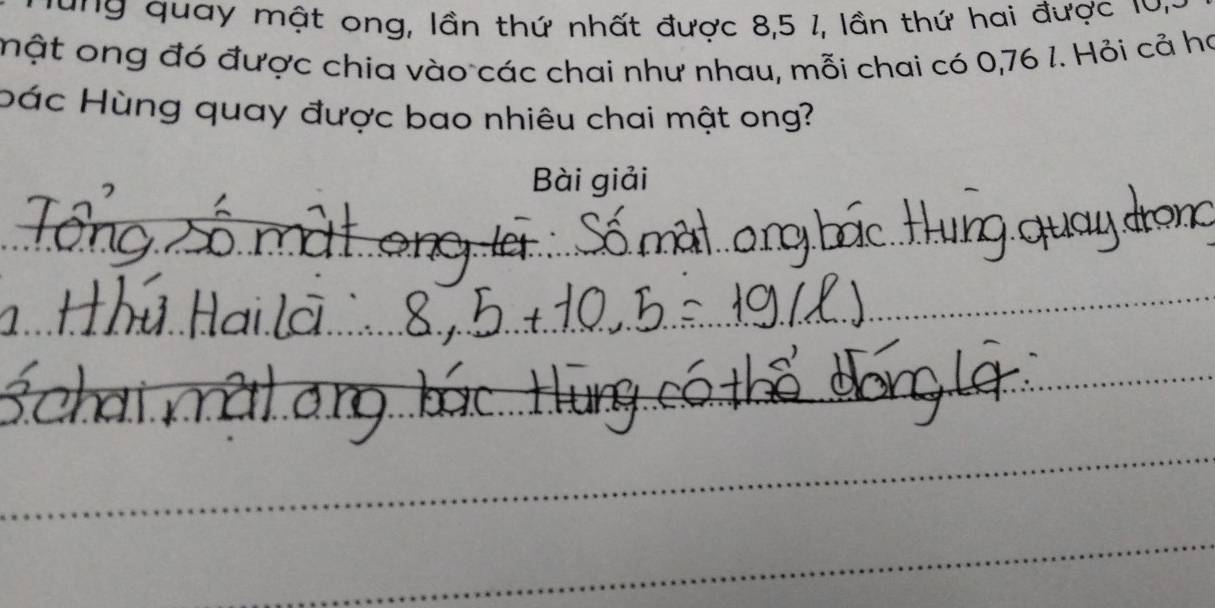 quay mật ong, lần thứ nhất được 8,5 l, lần thứ hai được 10,5
mật ong đó được chia vào các chai như nhau, mỗi chai có 0,76 l. Hỏi cả
bác Hùng quay được bao nhiêu chai mật ong?
Bài giải
Tổng số mật ong là: Số mật ong bác Hùng quay trong
Thứ Hai là: 8,5 + 10,5 = 19 (l)
chai mật ong bác Hùng có thể đóng là: